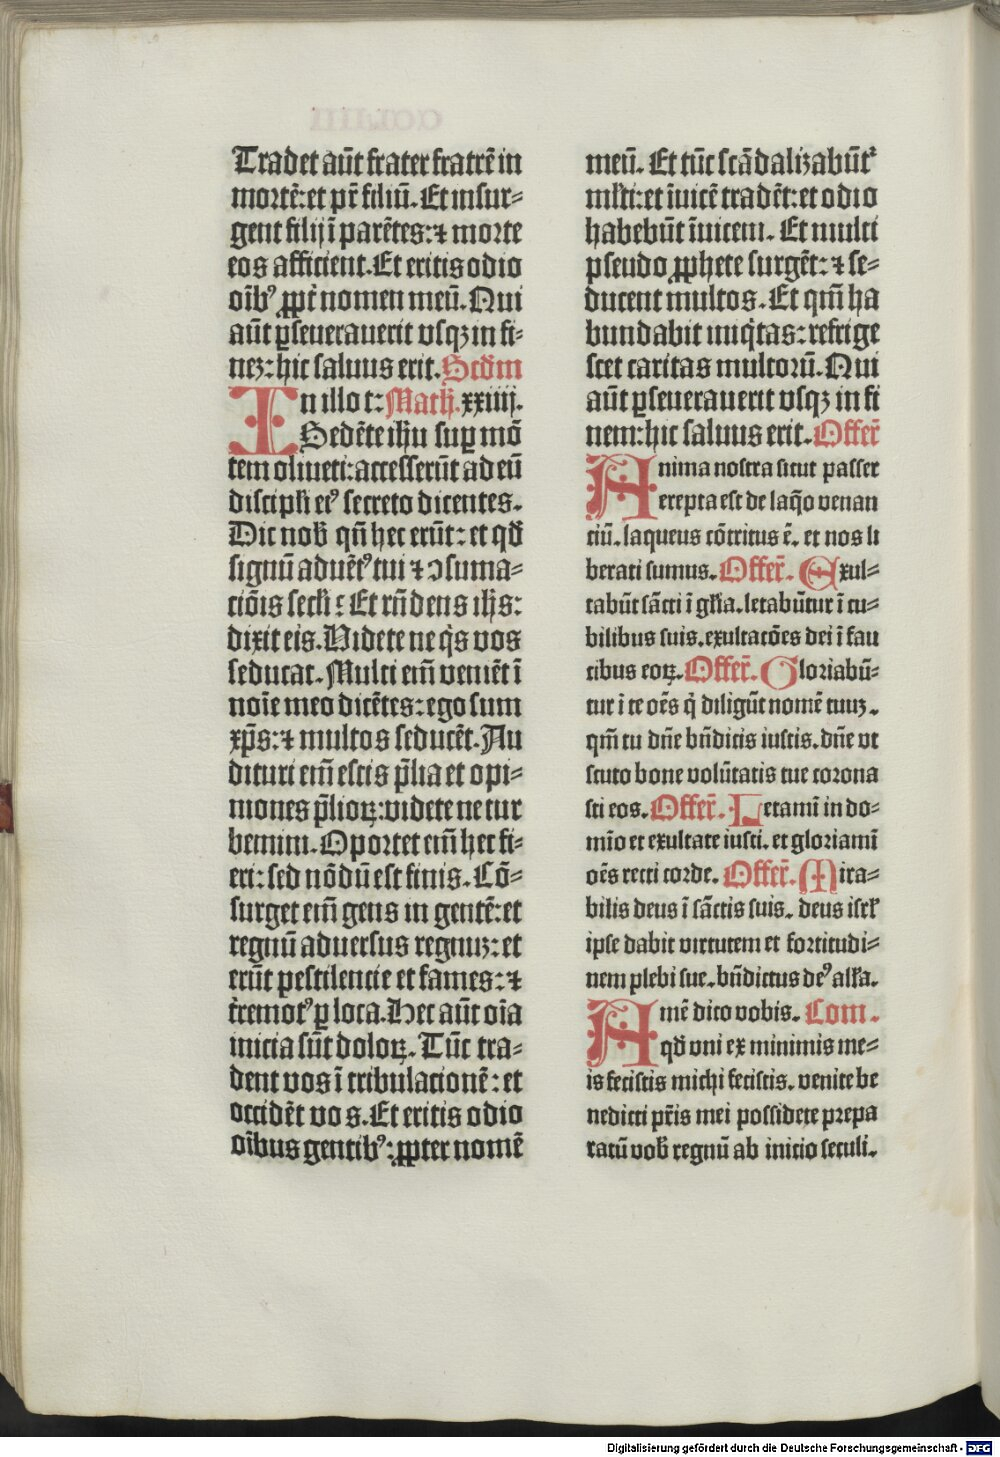 Tradet aūt frater fratrē in
mortē: et pr̄ filiū. Et insur⸗
gent filij ī parētes: ⁊ morte
eos afficient. Et eritis odio
oībꝰ ꝓpt̄ nomen meū. Qui
aūt ꝑseuerauerit vsqꝫ in fi⸗
neꝫ: hic saluus erit. Scd̄m
In illo t: Math̄. xxiiij.
Sedēte ih̄u suꝑ mō
tem oliueti: accesserūt ad eū
discipl̄i eiꝰ secreto dicentes.
Dic nob̄ qn̄ hec erūt: et qd̄
signū aduētꝰ tui ⁊ ↄsuma⸗
ciōis secl̄i? Et rn̄dens ih̄s:
dixit eis. Videte ne q̄s vos
seducat. Multi em̄ veniēt ī
noīe meo dicētes: ego sum
xp̄s: ⁊ multos seducēt. Au
dituri em̄ estis p̄lia et opi⸗
niones p̄lioꝝ: videte ne tur
bemini. Oportet em̄ hec fi⸗
eri: sed nōdū est finis. Cō⸗
surget em̄ gens in gentē: et
regnū aduersus regnuꝫ: et
erūt pestilencie et fames: ⁊
tr̄emotꝰ ꝑ loca. Hec aūt oīa
inicia sūt doloꝝ. Tūc tra⸗
dent vos ī tribulacionē: et
occidēt vos. Et eritis odio
oībus gentibꝰ: ꝓpter nomē
meū. Et tūc scādalizabūtᷣ
ml̄ti: et īuicē tradēt: et odio
habebūt īuicem. Et multi
pseudo ꝓphete surgēt: ⁊ se⸗
ducent multos. Et qm̄ ha
bundabit iniq̄tas: refrige
scet caritas multorū. Qui
aūt ꝑseuerauerit vsqꝫ in fi
nem: hic saluus erit. Offer̄
Anima nostra sicut passer
erepta est de laq̄o venan
ciū. laqueus cōtritus ē. et nos li
berati sumus. Offer̄. Exul⸗
tabūt sācti ī gl̄ia. letabūtur ī cu⸗
bilibus suis. exultacōes dei ī fau
cibus eoꝝ. Offer̄. Gloriabū⸗
tur ī te oēs q̄ diligūt nomē tuuꝫ.
qm̄ tu dn̄e bn̄dicis iustis. dn̄e vt
scuto bone volūtatis tue corona
sti eos. Offer̄. Letamī in do⸗
mīo et exultate iusti. et gloriamī
oēs recti corde. Offer̄. Mira⸗
bilis deus ī sāctis suis. deus isrl̄
ipse dabit virtutem et fortitudi⸗
nem plebi sue. bn̄dictus deꝰ all̄a.
Amē dico vobis. Com.
qd̄ vni ex minimis me⸗
is fecistis michi fecistis. venite be
nedicti pr̄is mei possidete prepa
ratū vob̄ regnū ab inicio seculi.
Digitalisierung gefördert durch die Deutsche Forschungsgemeinschaft - DFG